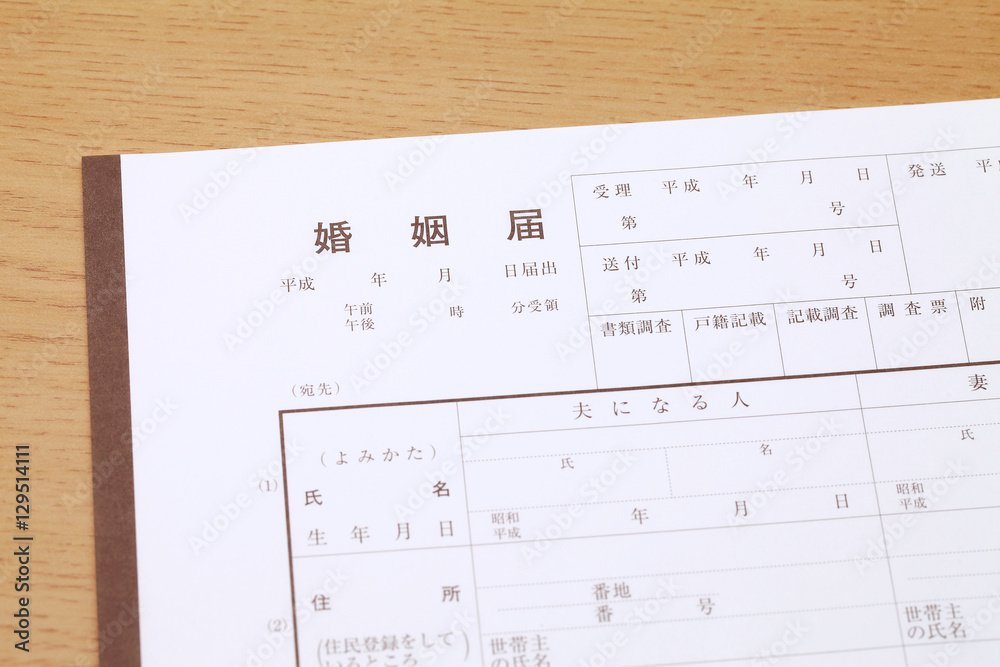 婚姻届
平成 年 月 日届出
午前
午後 時 分受領
(宛先)
受理 平成 年 月 日
第 号
送付 平成 年 月 日
第 号
発送 平
書類調査 戸籍記載 記載調査 調査票 附
夫になる人 妻
(よみかた)
氏 名 氏
(1)
氏名
生年月日 昭和 年 月 日 昭和
平成 平成
住所
番地
番 号
(2)
(住民登録をして
いるところ
世帯主
の氏名
世帯主
の氏名
Adobe Stock | #129514111